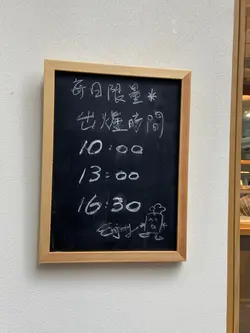 每日限量*
出爐時間
10:00
13:00
16:30